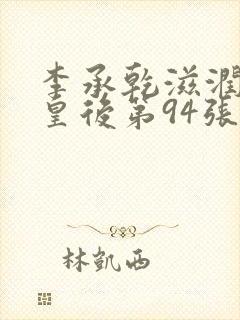 李承乾滋潤
皇後第94張
林凱西